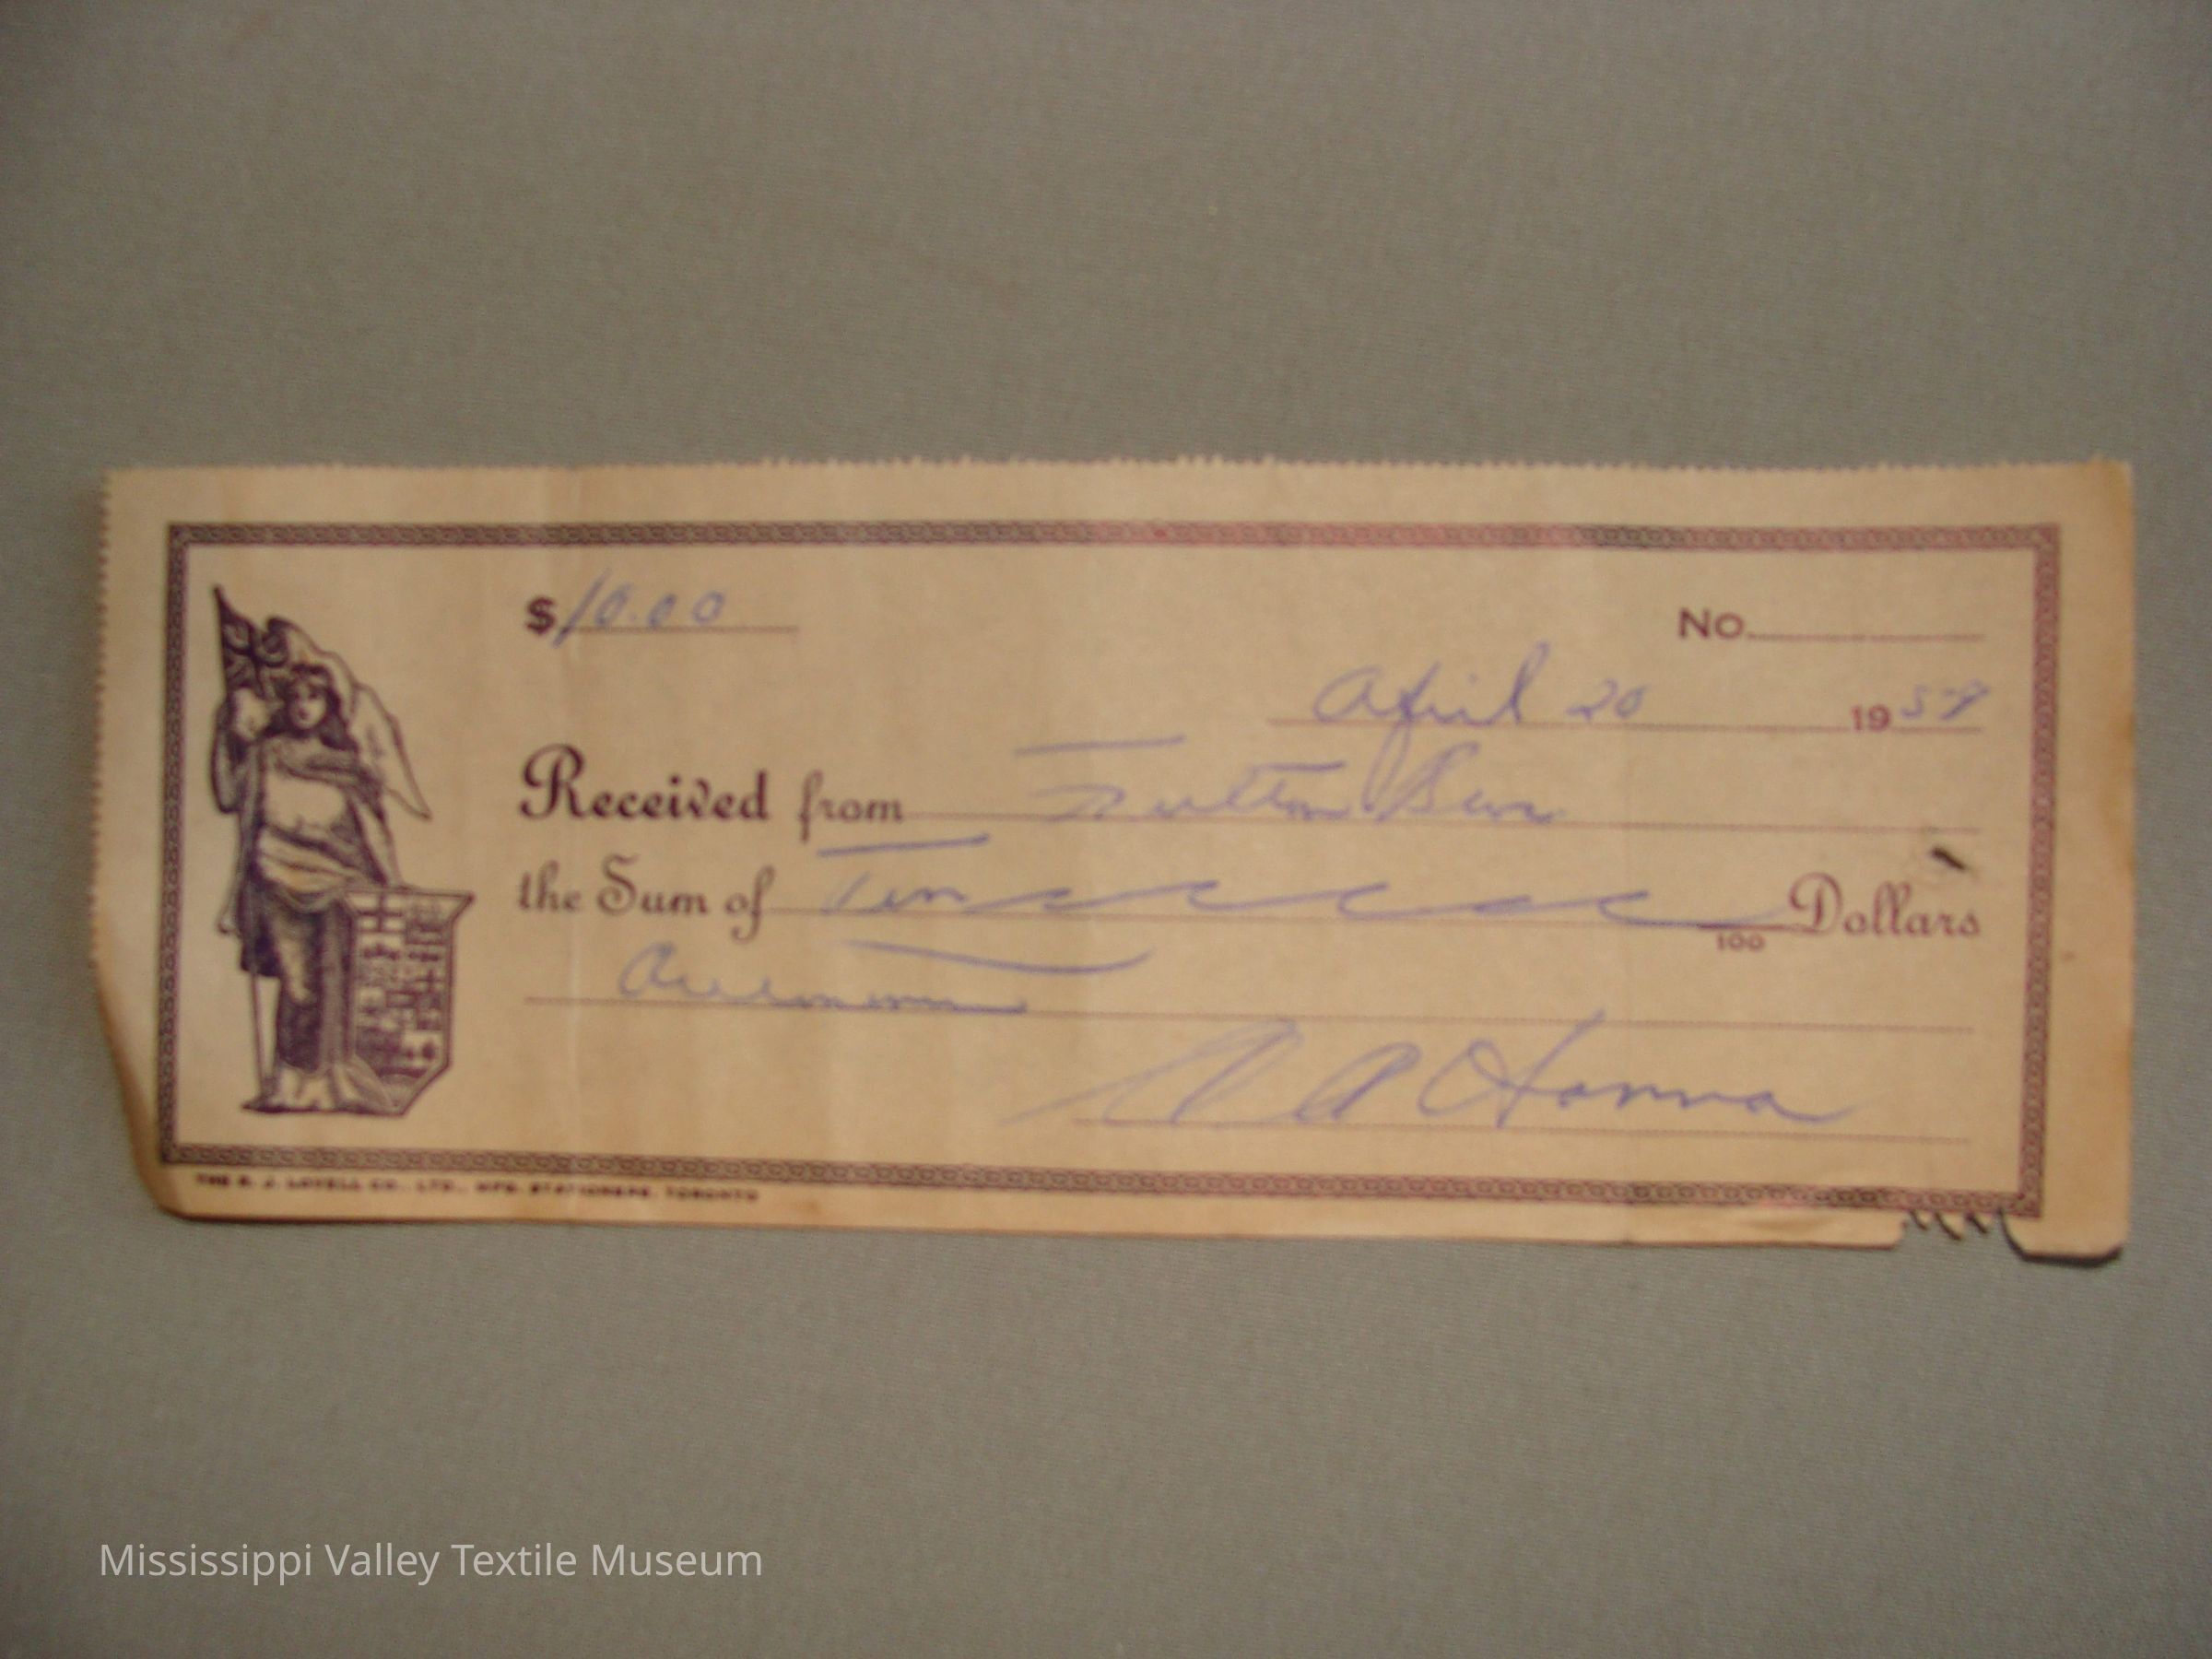 $10.00
No.
April 20 1957
Received from Fulton Bros
the Sum of Ten 100 Dollars
A A Hanna
THE R. J. LOVELL CO., LTD., MFG. STATIONERS, TORONTO
Mississippi Valley Textile Museum